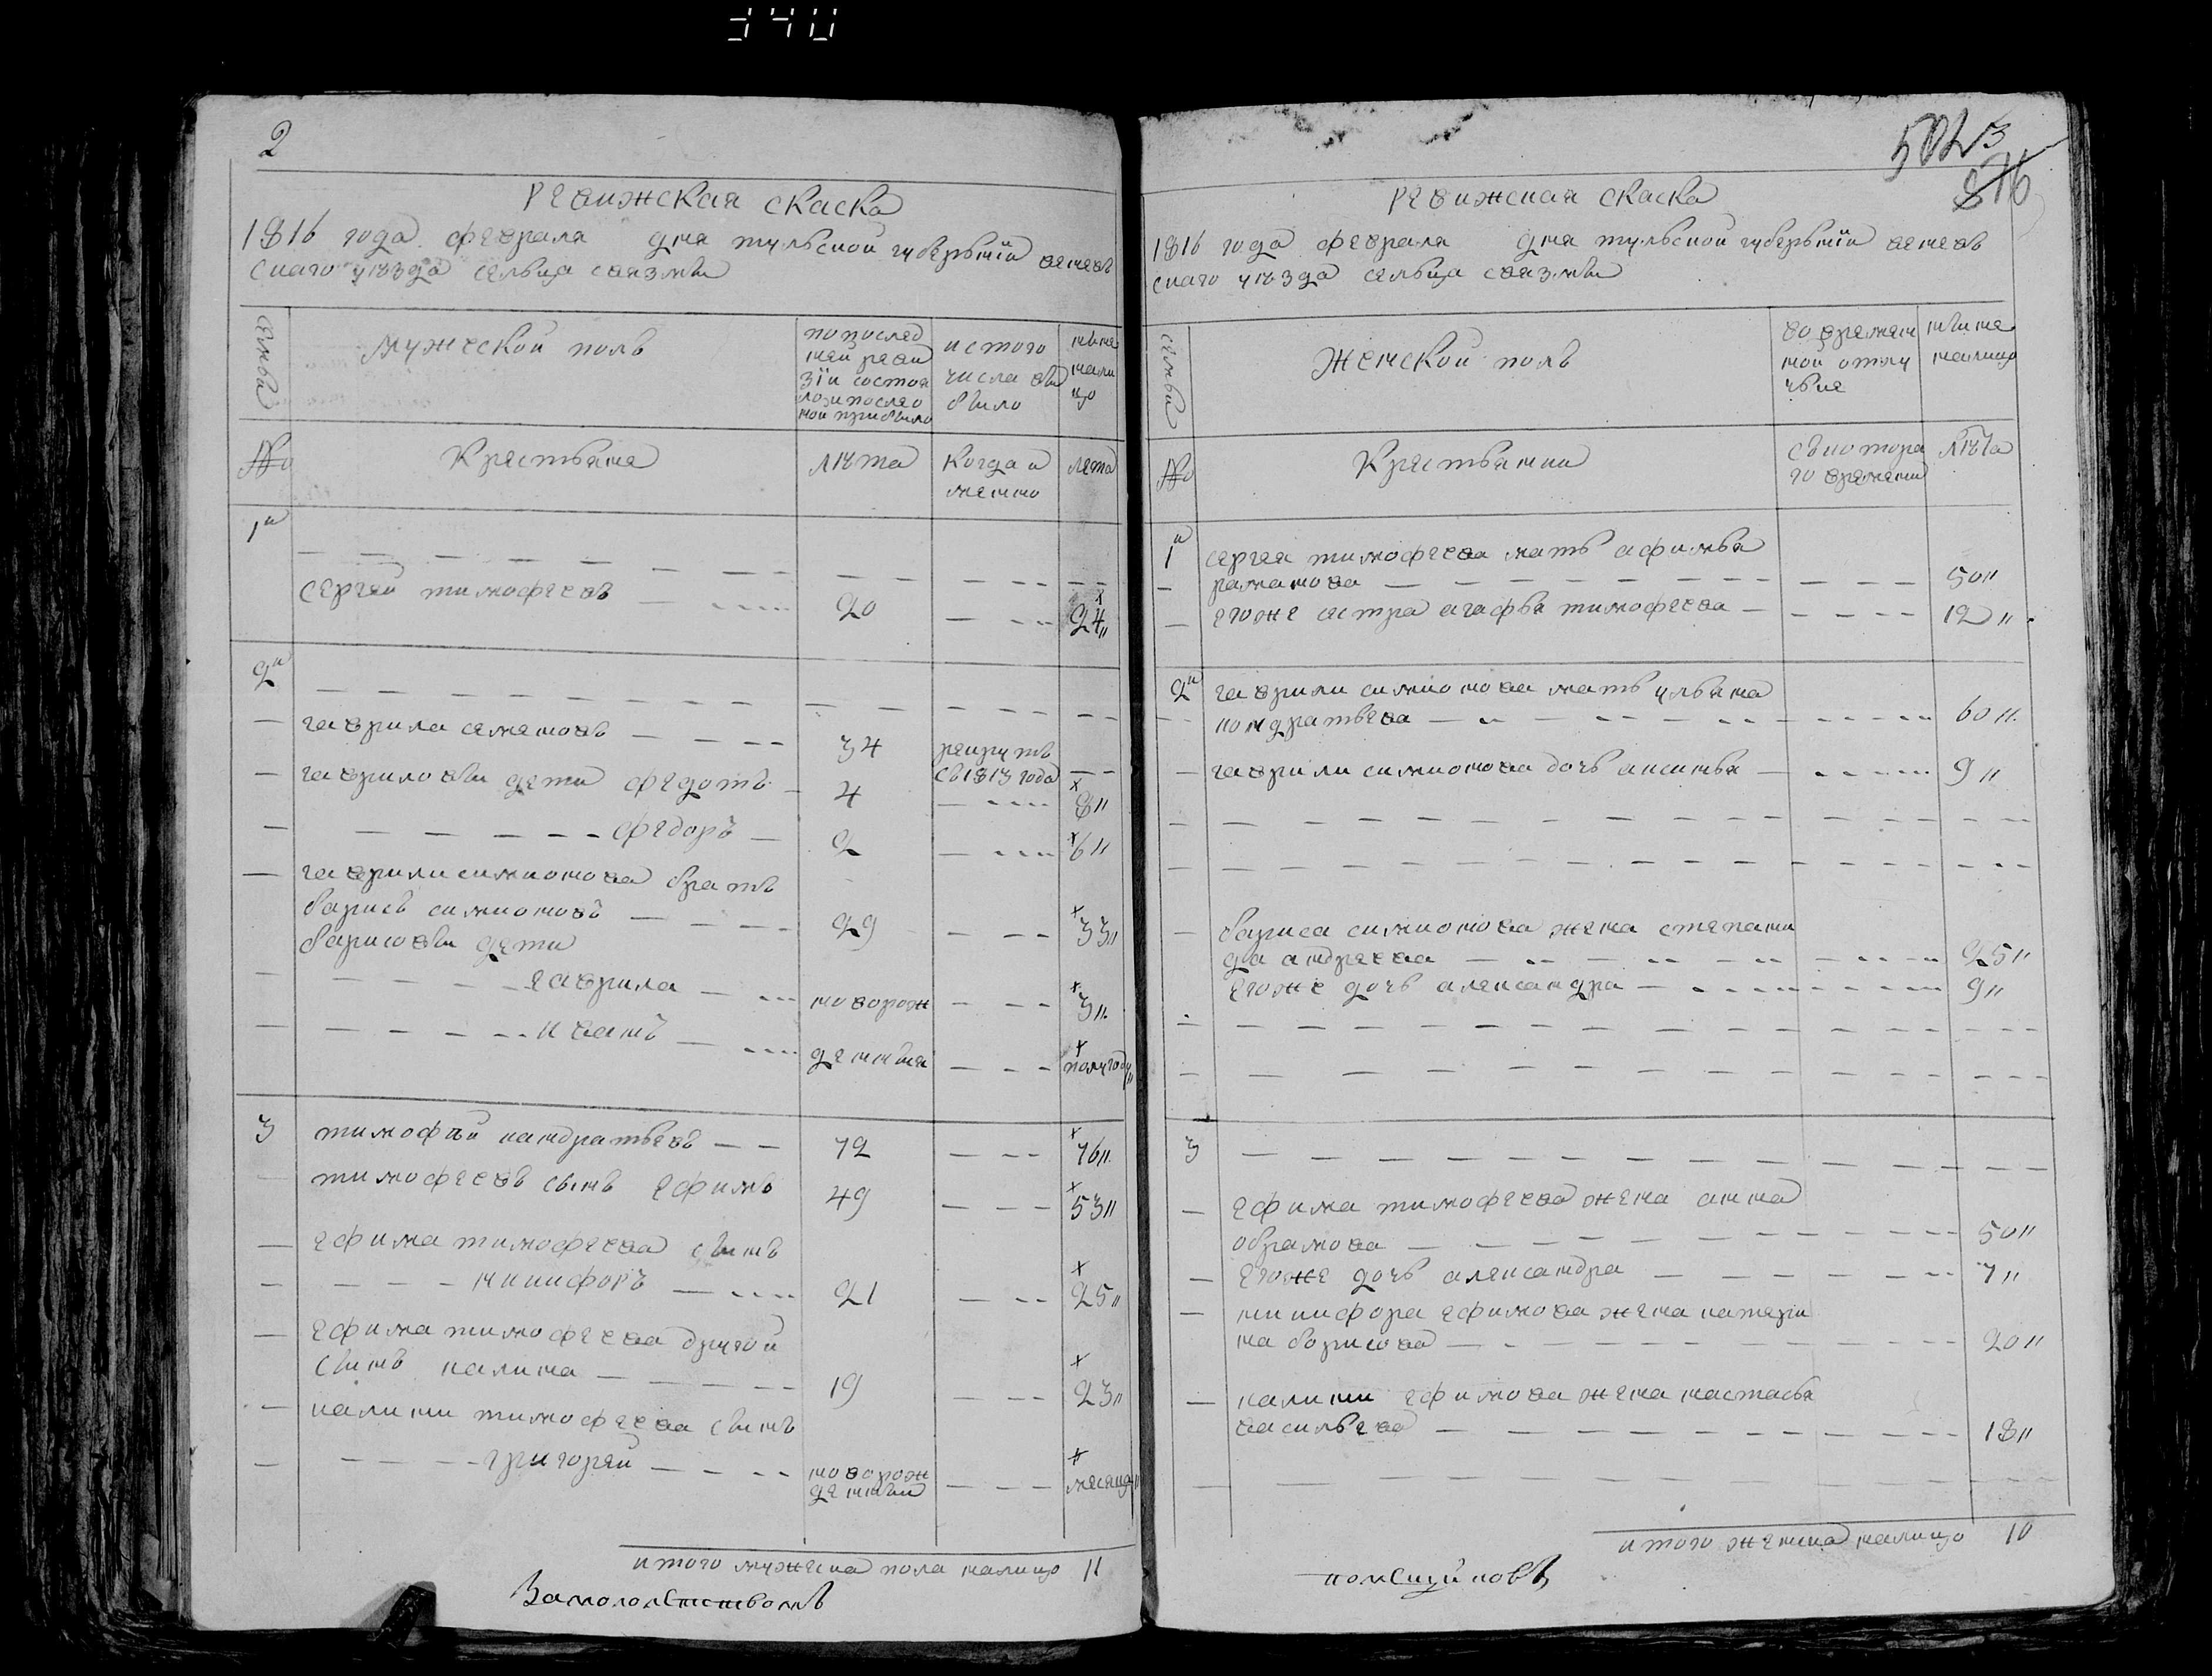 340
2
ревижская скаска
1816 года февраля дня тульской губерьнїи венев
скаго уѣзда сельца свазмы
семьи
мужеской полъ
по послед
ней реви
зїи состоя
ло и после о
ной прибыло
ис того
числа вы
было
ныне
нали
цо
№
Крестьяне
лѣта
когда и
менно
лета
1й
сергей тимофеевъ
20
24
2й
гаврила семеновъ
34
рекрутъ
съ 1813 года
гавриловы дети федотъ
4
8
федоръ
2
6
гаврили симионова братъ
барисъ симионовъ
29
33
барисовы дети
гаврила
новорож
3
иванъ
денныя
полугоду
3
тимофѣй кандратьевъ
72
76
тимофеевъ сынъ ефимъ
49
53
ефима тимофеева сынъ
никифоръ
21
25
ефима тимофеева другой
сынъ калина
19
23
калини тимофеева сынъ
григорей
новорож
денный
месяца
итого мужеска пола налицо 11
502 3
876
ревижская скаска
1816 года февраля дня тульской губерьнїи венев
скаго уѣзда сельца свазмы
семьи
Женской полъ
во времен
ной отлу
чьке
ныне
налицо
№
Крестьянки
съ котора
го времени
лѣта
1й
сергея тимофеева мать афимья
раманова
50
егоже сестра агафья тимофеева
12
2й
гаврили симионова мать ульяна
кондратьева
60
гаврили симионова дочь аксинья
9
бариса симионова жена степани
да андреева
25
егоже дочь александра
9
3
ефима тимофеева жена анна
обрамова
50
егоже дочь александра
7
никифора ефимова жена катери
на борисова
20
калини ефимова жена настасья
васильева
18
итого женска налицо 10